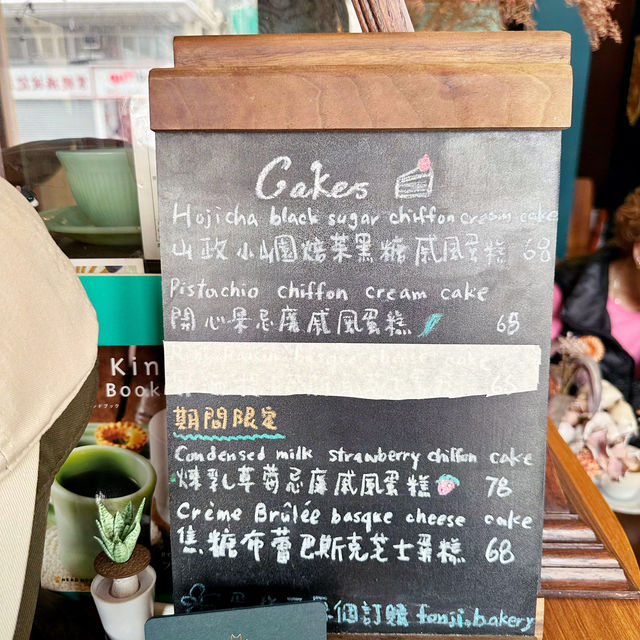 Cakes
Hojicha black sugar chiffon cream cake
山政小山園焙茶黑糖戚風蛋糕 68
Pistachio chiffon cream cake
開心果忌廉戚風蛋糕 68
Kin
Book
期間限定
Condensed milk strawberry chiffon cake
煉乳草莓忌廉戚風蛋糕 78
Crème Brûlée basque cheese cake
焦糖布蕾巴斯克芝士蛋糕 68
個訂購 fonji.bakery